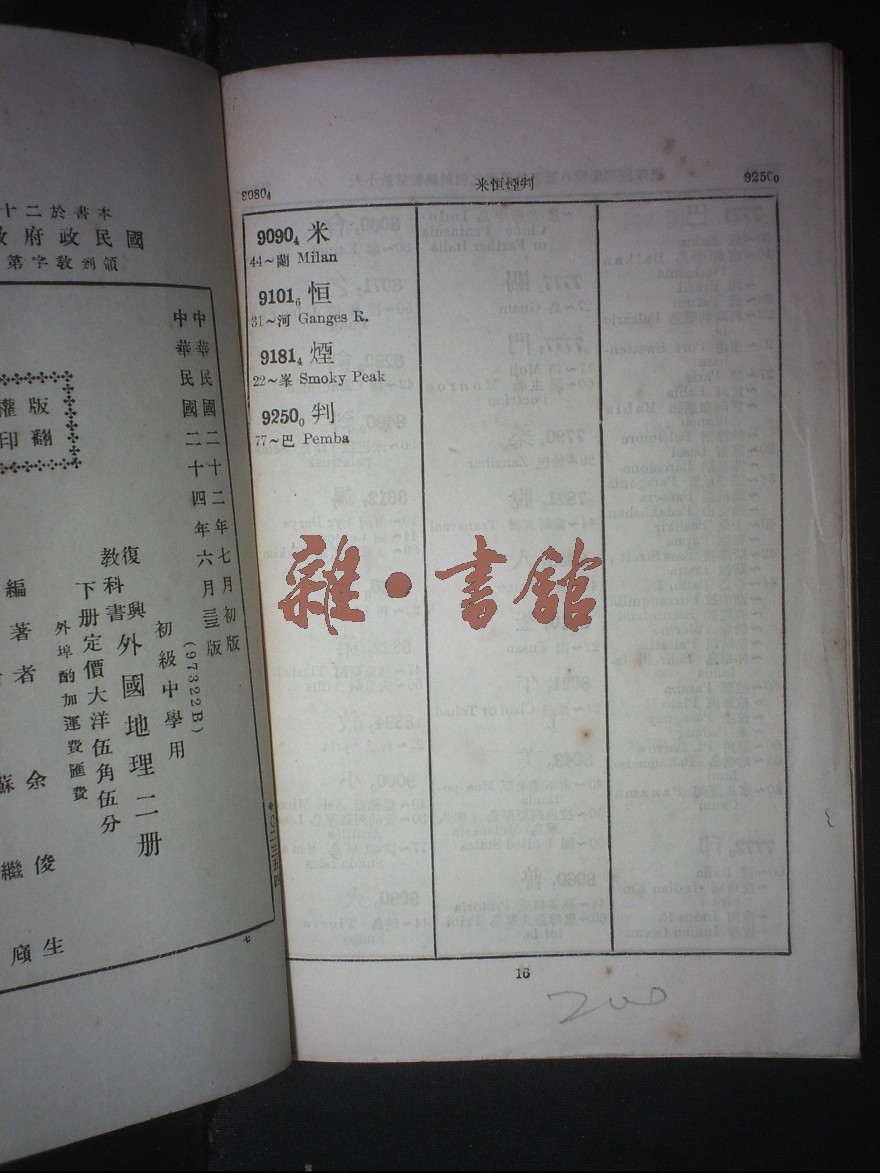 9080₄ 米恒煙判 9250₀
9090₄ 米
44～蘭 Milan
9101₆ 恒
31～河 Ganges R.
9181₄ 煙
22～峯 Smoky Peak
9250₀ 判
77～巴 Pemba
16
200
雜·書館
本書於二十
國民政府教
領到教字第
版權
翻印
中華民國二十二年七月初版
中華民國二十四年六月三版
(97322B)
初級中學用
復興教科書
外國地理二册
下册定價大洋伍角伍分
外埠酌加運費匯費
編著者
余俊生
蘇繼廎
七